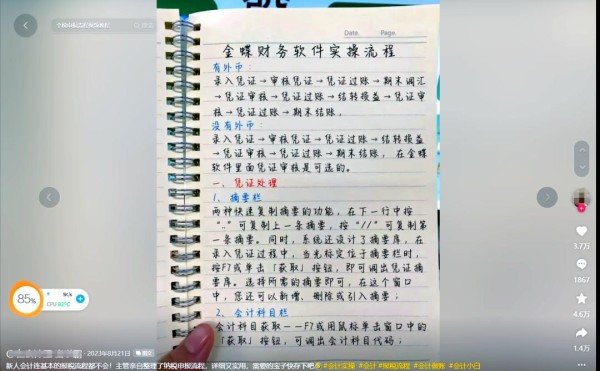 Date.   Page.
金蝶财务软件实操流程
有外币：
录入凭证→审核凭证→凭证过账→期末调汇
→凭证审核→凭证过账→结转损益→凭证审
核→凭证过账→期末结账。
没有外币：
录入凭证→审核凭证→凭证过账→结转损益
→凭证审核→凭证过账→期末结账，在金蝶
软件里面凭证审核是可选的。
一、凭证处理
1、摘要栏
两种快速复制摘要的功能，在下一行中按
“..”可复制上一条摘要，按“//”可复制第
一条摘要。同时，系统还设计了摘要库，在
录入凭证过程中，当光标定位于摘要栏时，
按F7或单击「获取」按钮，即可调出凭证摘
要库。选择所需的摘要即可，在这个窗口
中，您还可以新增、删除或引入摘要；
2、会计科目栏
会计科目获取——F7或用鼠标单击窗口中的
「获取」按钮，可调出会计科目代码；
3.7万
1867
4.6万
1.4万
85%
1K/s
CPU
2023年8月21日
新人会计连基本的报税流程都不会！主管亲自整理了纳税申报流程，详细又实用，需要的宝子快存下吧 #会计实操 #会计 #报税流程 #会计做账 #会计小白